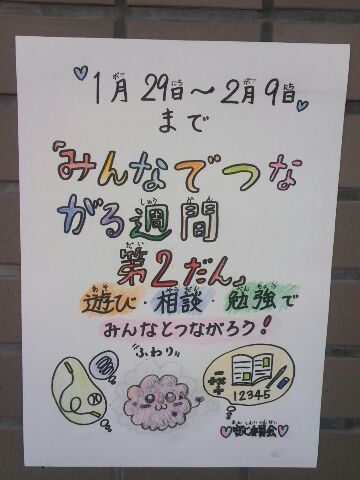 1月29日～2月9日
まで
「みんなでつな
がる週間
第2だん」
遊び・相談・勉強で
みんなとつながろう!
"ふわり"
12345